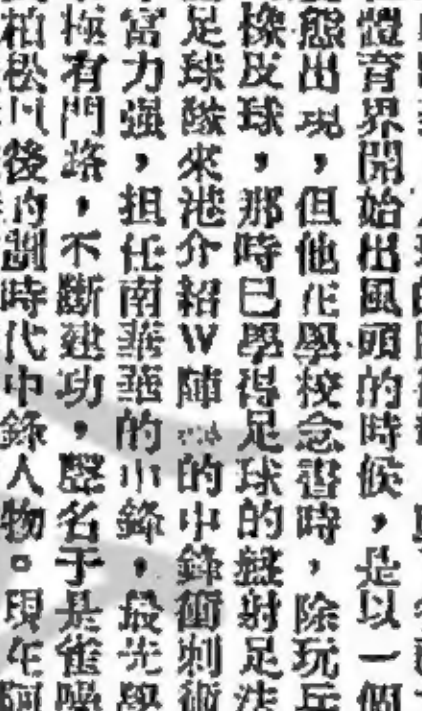 體育界開始出風頭的時候，是以一個
態出現，但他在學校念書時，除玩乒
橡皮球，那時已學得足球的盤射足法
足球隊來港介紹W陣的中鋒衝刺術
富力强，担任南華華的中鋒，最先學
極有門路，不斷建功，聲名于是雀噪
柏松門後的訓時代中鋒人物。現在阿